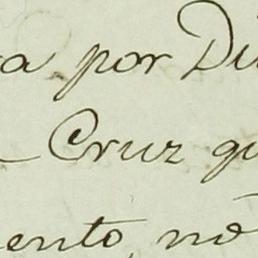 a por Di
Cruz qu
ento, no